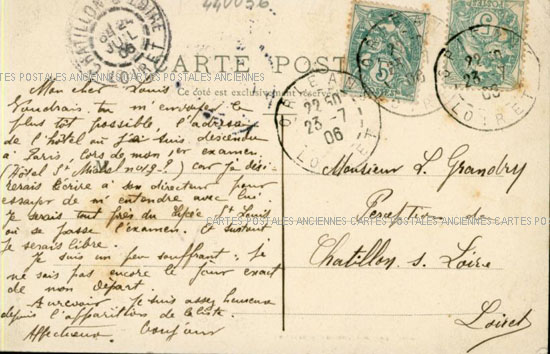 440056
CHATILLON S LOIRE
24
JUIL
06
LOIRET
CARTE POSTALE
Ce côté est exclusivement réservé
ORLEANS
22 50
23 - 7
06
LOIRET
22 50
23
06
LOIRET
CARTES POSTALES ANCIENNES CARTES POSTALES ANCIENNES CARTES POSTALES ANCIENNES CARTES POSTALES ANCIENNES
Mon cher Louis
Voudrais tu m'envoyer le
plus tôt possible l'adresse
de l'hôtel où j'ai suis descendu
à Paris, lors de mon examen
(Hôtel St Michel no 9 ?) car je dési-
rerais écrire à son directeur pour
essayer de m'entendre avec lui.
Je serais tout près du Lycée St Louis
où se passe l'examen. Et surtout
je serais libre.
Je suis un peu souffrant; je
ne sais pas encore le jour exact
de mon départ.
Aurevoir. Je suis assez heureux
depuis l'apparition de la liste.
Affectueux bonjour
Monsieur L. Grandry
Perception de
Chatillon s. Loire
Loiret